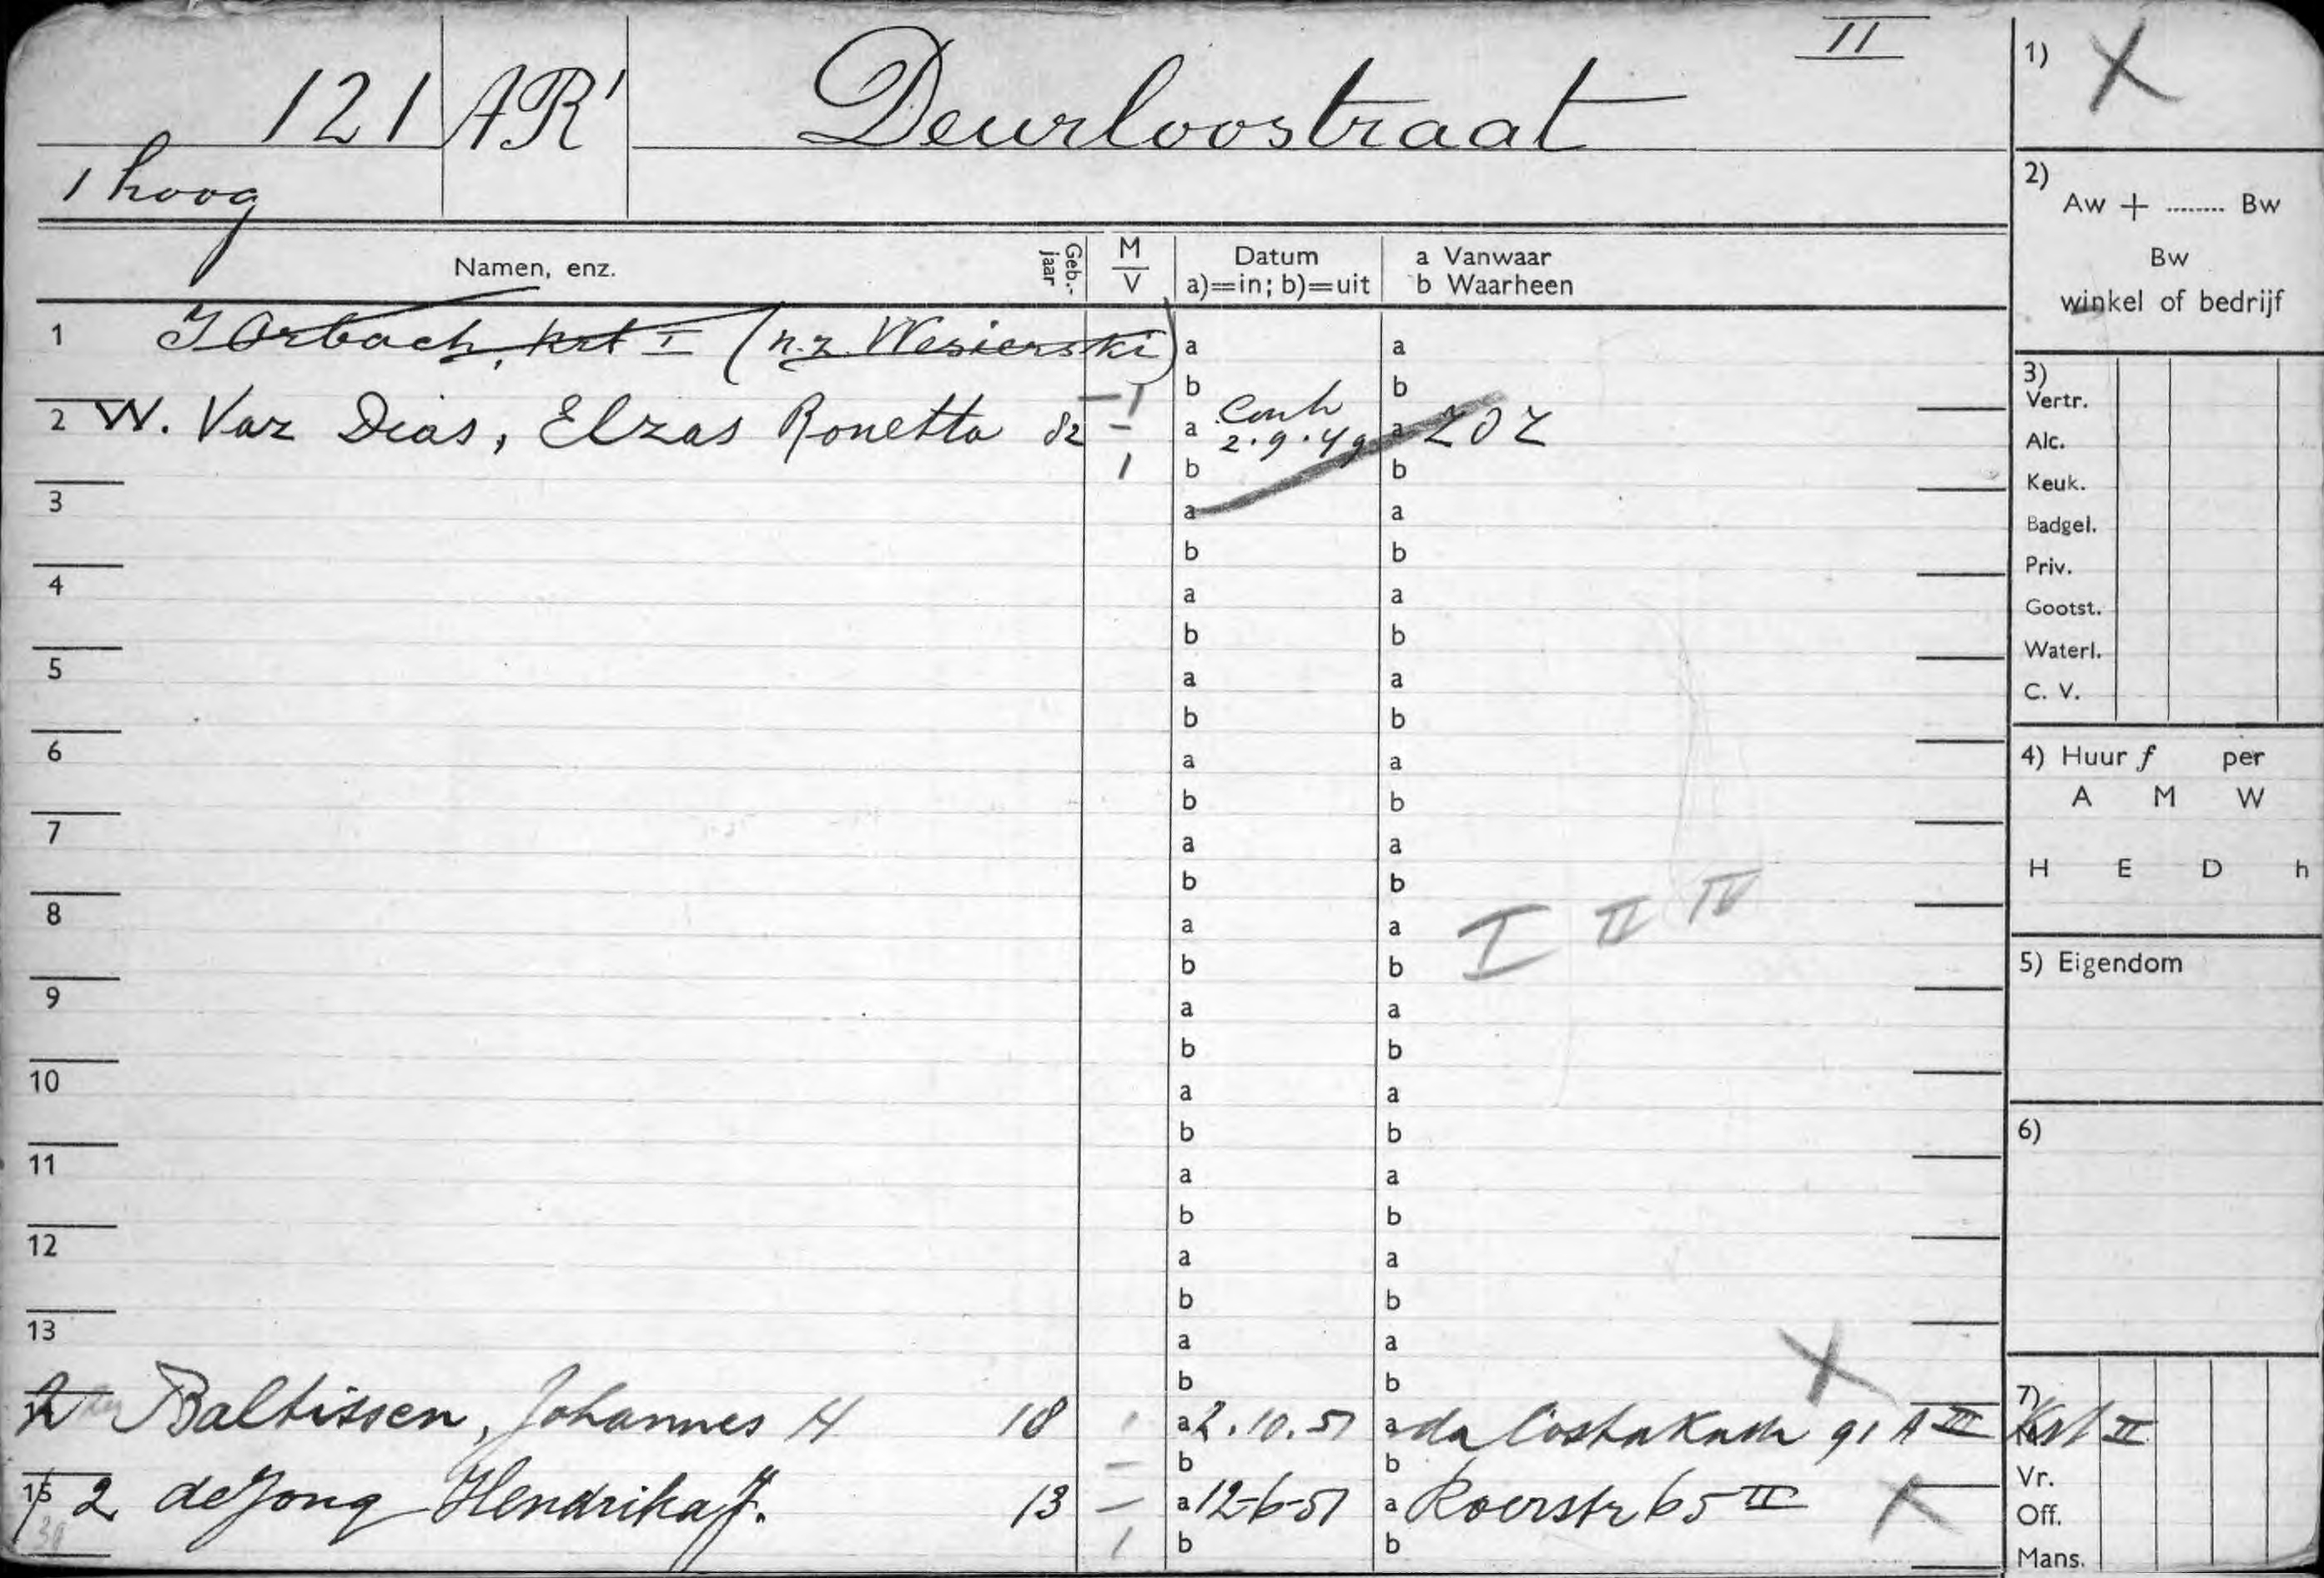 II
121 AR' Deurloostraat
1 hoog
Namen, enz. Geb.-jaar M/V Datum a)=in; b)=uit a Vanwaar b Waarheen
1 Orbach, krt I (n.z. Wesierski) a a
b b
2 W. Vaz Dias, Elzas Ronetta 82 - a 2.9.49 a Z O Z
1 b b
3 a a
b b
4 a a
b b
5 a a
b b
6 a a
b b
7 a a
b b
8 a a I II IV
b b
9 a a
b b
10 a a
b b
11 a a
b b
12 a a
b b
13 a a X
b b
Baltissen, Johannes H 18 a 2.10.51 a da Costakade 91 A III
- b b
15 2 de Jong Hendrika J. 13 - a 12-6-51 a Roerstr 65 II X
1 b b
1) X
2)
Aw + ........ Bw
Bw
winkel of bedrijf
3)
Vertr.
Alc.
Keuk.
Badgel.
Priv.
Gootst.
Waterl.
C. V.
4) Huur f per
A M W
H E D h
5) Eigendom
6)
7)
Krt II
Vr.
Off.
Mans.